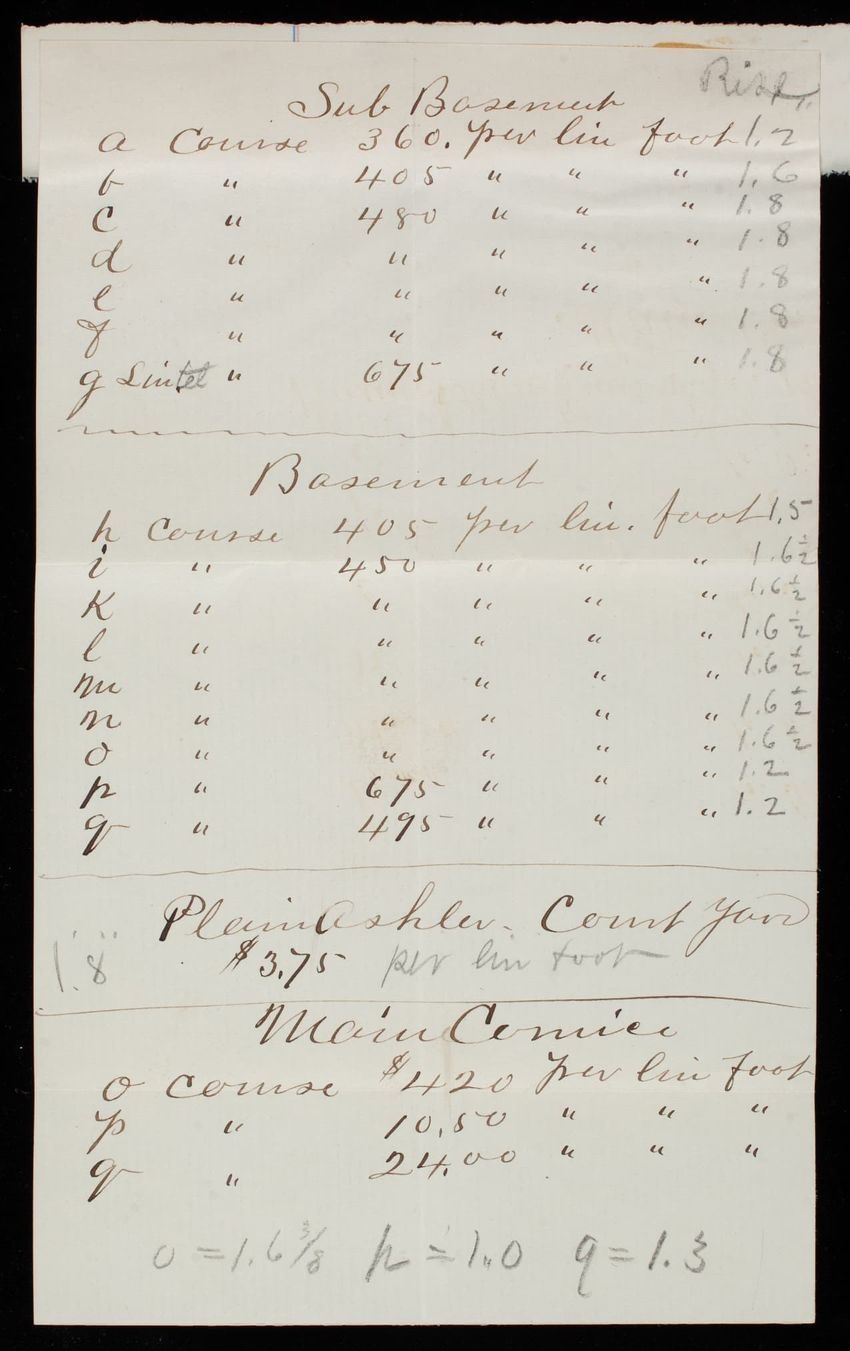 Rise
Sub Basement
a Course 360. per lin foot 1.2
b " 405 " " " 1.6
c " 480 " " " 1.8
d " " " " " 1.8
e " " " " " 1.8
f " " " " " 1.8
g Lintel " 675 " " " 1.8
Basement
h course 405 per lin. foot 1.5
i " 450 " " " 1.6½
K " " " " " 1.6½
l " " " " " 1.6½
m " " " " " 1.6½
n " " " " " 1.6½
o " " " " " 1.6½
p " 675 " " " 1.2
q " 495 " " " 1.2
Plain Ashler - Court Yard
1.8 $3.75 per lin foot
Main Cornice
o course $420 per lin foot
p " 10.50 " " "
q " 24.00 " " "
o = 1.6 3/8 p = 1.0 q = 1.3